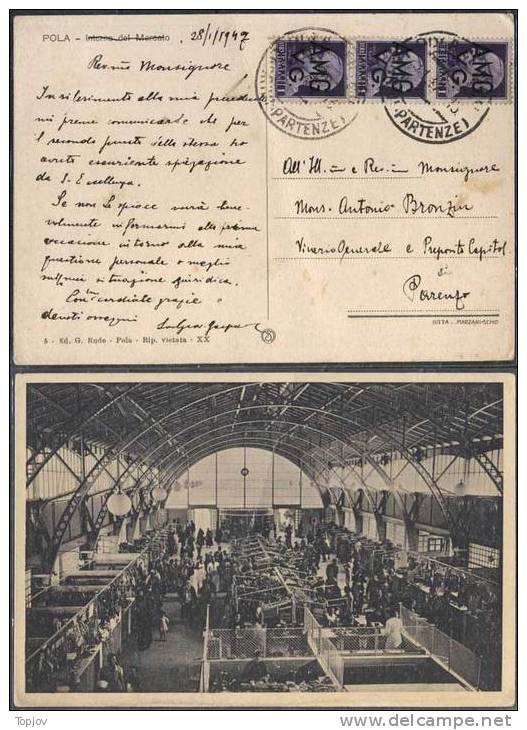 POLA - Interno del Mercato
28/1/1947
Rev.mo Monsignore
In riferimento alla mia precedente
mi preme comunicarle che per
il secondo punto della stessa ho
avuto esauriente spiegazione
da S. Eccellenza.
Se non Le spiace vorrà bene-
volmente informarmi alla prima
occasione intorno alla mia
questione personale o meglio
sulla mia situazione giuridica.
Con cordiale grazie e
devoti ossequi
5 - Ed. G. Rude - Pola - Rip. vietata - XX
AMG
VG
AMG
VG
AMG
VG
(PARTENZE)
(PARTENZE)
All'Ill. mo e Rev. mo Monsignore
Mons. Antonio Bronzin
Vicario Generale e Preposito Capitol.
di
Parenzo
DITTA - MARZARI-SCHIO
Topjov
delcampe.net